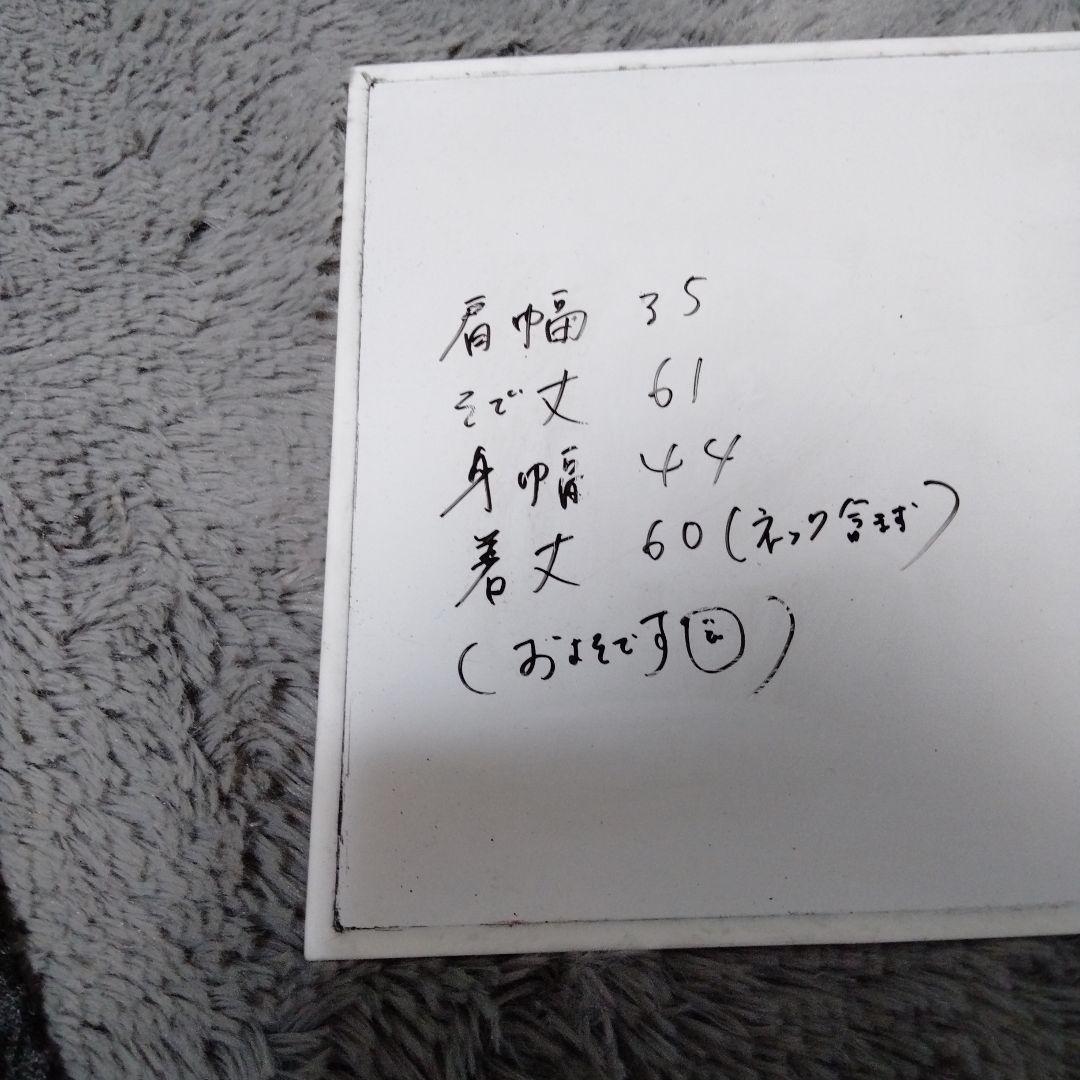 肩幅 35
そで丈 61
身幅 44
着丈 60(ネック含まず)
(およそです)